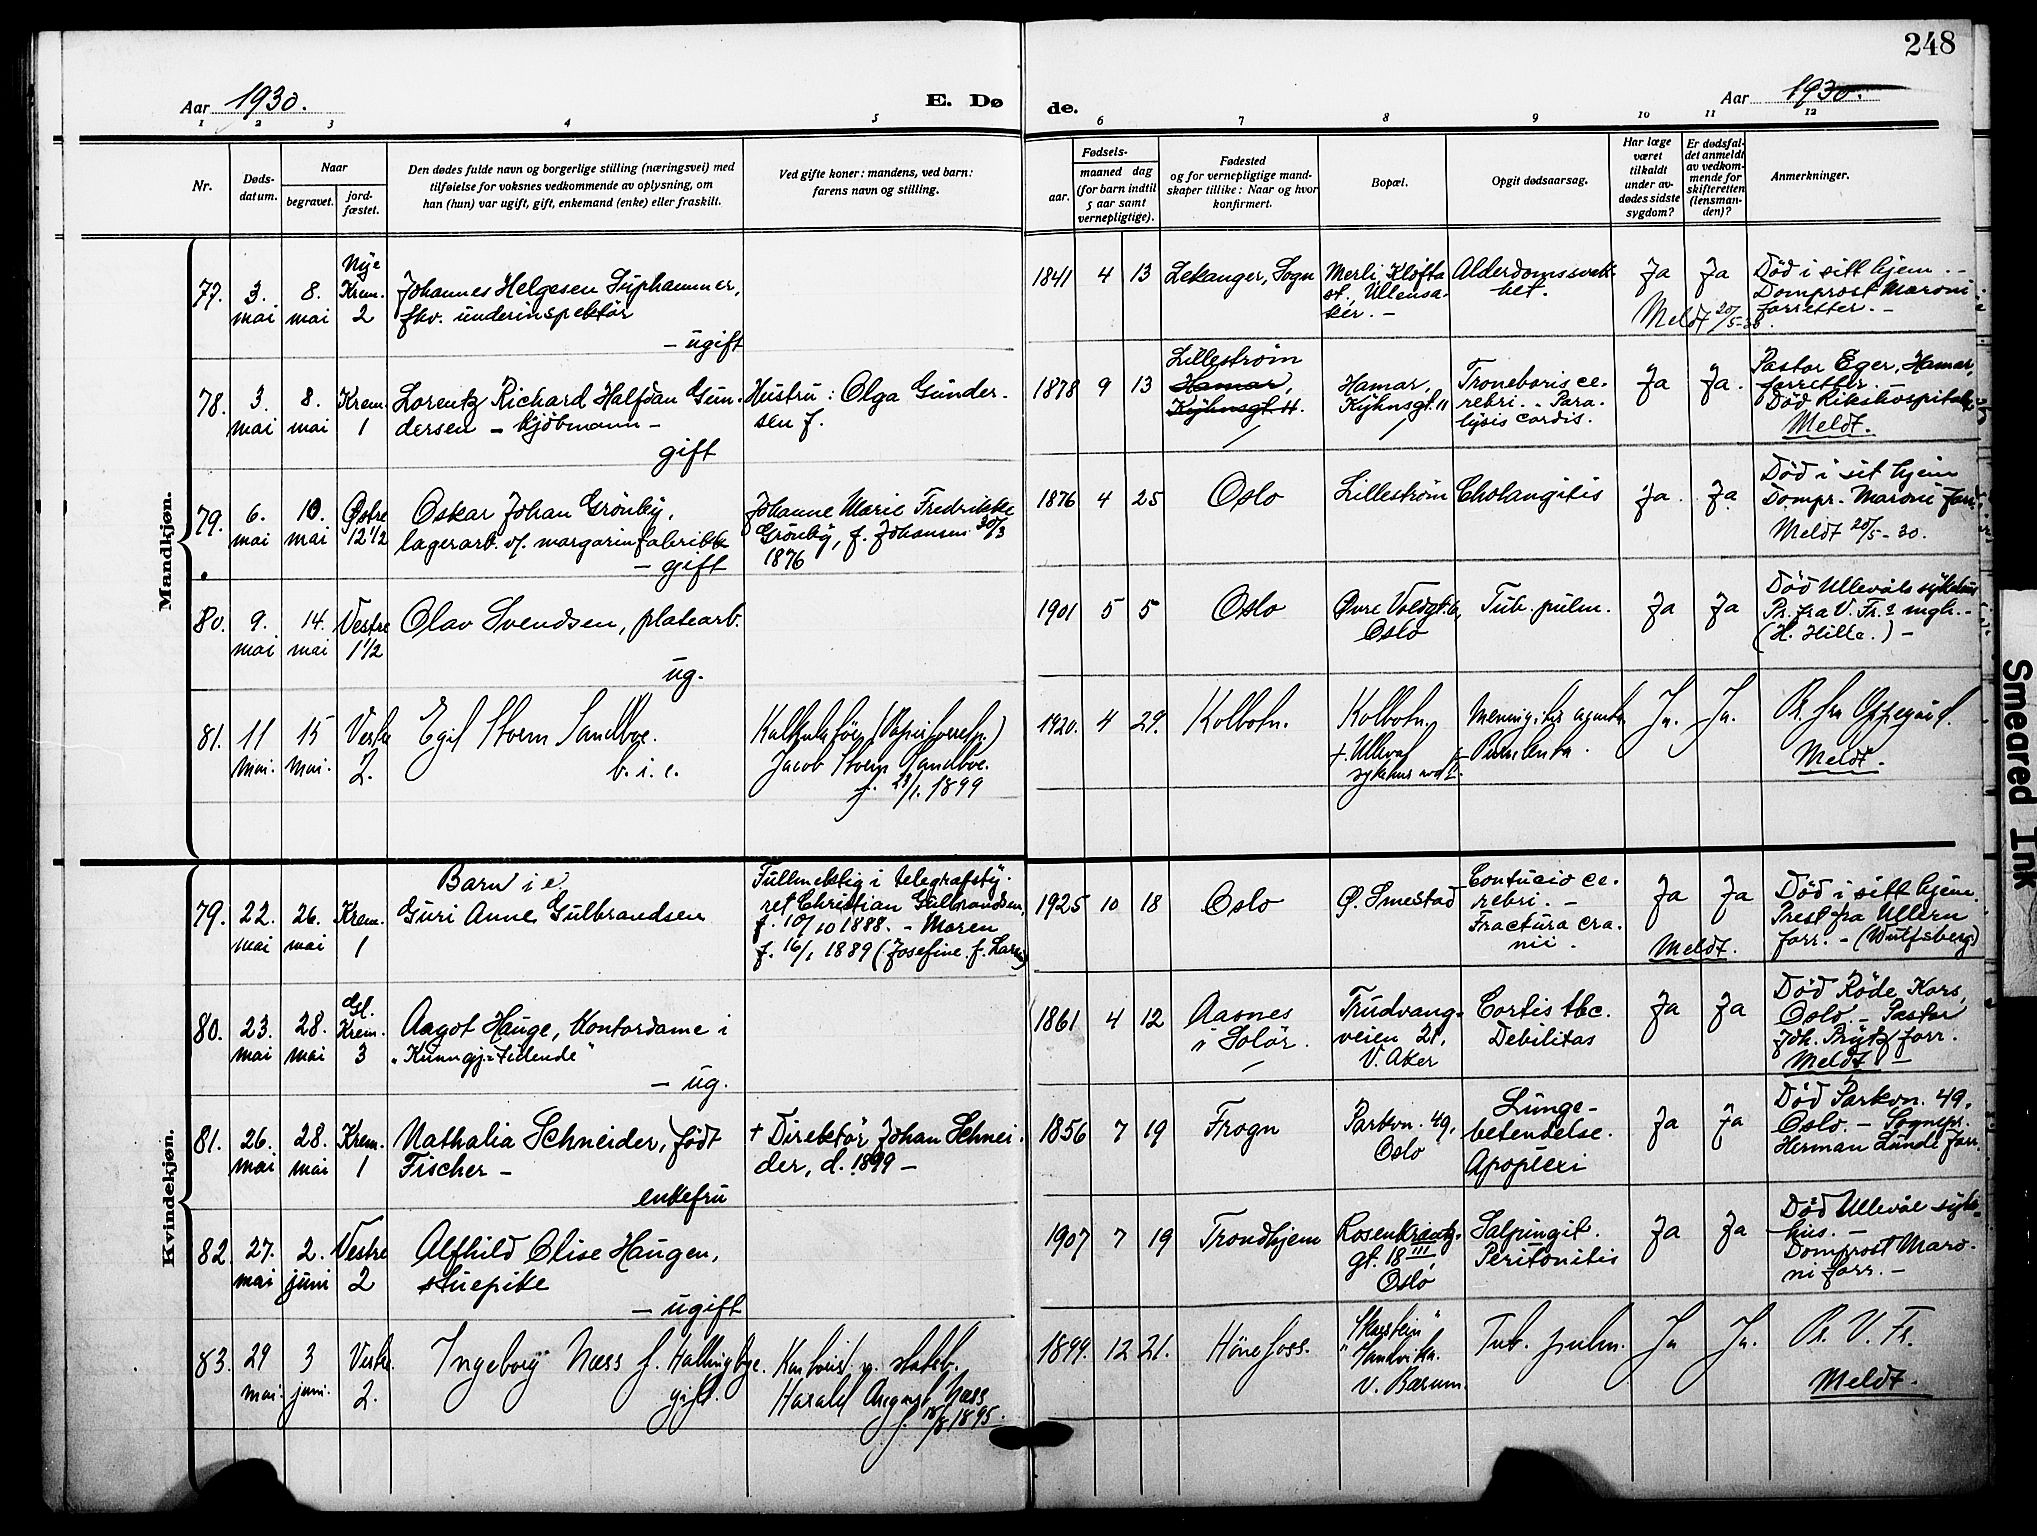 248
Aar 1930.
E. Dø
de.
Aar 1930.
1 2 3 4 5 6 7 8 9 10 11 12
Nr.
Døds-
datum.
Naar
begravet.
jord-
fæstet.
Den dødes fulde navn og borgerlige stilling (næringsvei) med
tilføielse for voksnes vedkommende av oplysning, om
han (hun) var ugift, gift, enkemand (enke) eller fraskilt.
Ved gifte koner: mandens, ved barn:
farens navn og stilling.
Fødsels-
aar.
maaned dag
(for barn indtil
5 aar samt
vernepligtige).
Fødested
og for vernepligtige mand-
skaper tillike: Naar og hvor
konfirmert.
Bopæl.
Opgit dødsaarsag.
Har læge
været
tilkaldt
under av-
dødes sidste
sygdom?
Er dødsfal-
det anmeldt
av vedkom-
mende for
skifteretten
(lensman-
den)?
Anmerkninger.
Mandkjøn.
77.
3.
mai
8.
mai
Nye
Krem.
2
Johannes Helgesen Suphammer,
fhv. underinspektør
- ugift
1841 4 13
Lekanger, Sogn
Merli, Kløfta
st., Ullensa-
ker. -
Alderdomssvak-
het.
Ja
Ja
Meldt 20/5-30.
Død i sitt hjem. -
Domprost Maroni
forretter. -
78.
3.
mai
8.
mai
Krem.
1
Lorentz Richard Halfdan Gun-
dersen - kjøbmann -
gift
Hustru: Olga Gunder-
sen f.
1878 9 13
Lillestrøm
Hamar,
Kyhnsgt. 11.
Hamar,
Kyhnsgt. 11
cerebri. - Para-
lysis cordis.
Ja
Ja.
Pastor Eger, Hamar,
forretter. -
Død Rikshospitalet
Meldt.
79.
6.
mai
10.
mai
Østre
12 1/2
Oskar Johan Grønby,
lagerarb. v/. margarinfabrikk
- gift
Johanne Marie Fredrikke
Grønby, f. Johansen 30/3
1876
1876 4 25
Oslo
Lillestrøm
Cholangitis
Ja.
Ja.
Død i sit hjem
Dompr. Maroni forr.
Meldt 20/5-30.
80.
9.
mai
14.
mai
Vestre
1 1/2
Olav Svendsen, platearb.
ug.
1901 5 5
Oslo
Øvre Voldgt. 6,
Oslo
Tub. pulm.
Ja
Ja
Død Ullevåls sykehus
Pr. fra V. Fr.s mgh. -
(H. Hille.) -
81.
11
mai.
15
mai.
Vestre
2.
Egil Storm Sandboe.
b. i. e.
Jacob Storm Sandboe.
f. 28/1. 1899
1920. 4 29.
Kolbotn.
Kolbotn.
+ Ullevål
sykehus
Meningitis
Purulenta.
Ja.
Ja.
Pr. fra Oppegård.
Meldt.
Kvindekjøn.
79.
22.
mai
26.
mai
Krem.
1
Barn i e.
Guri Anne Gulbrandsen
Fullmektig i telegrafsty-
ret Christian Gulbrandsen,
f. 10/10 1888. - Maren
f. 16/1 1889 (Josefine f. Larsen)
1925 10 18
Oslo
Ø. Smestad
Contucio ce-
rebri. -
Fractura cra-
nii.
Ja
Ja
Meldt.
Død i sitt hjem.
Prest fra Ullern
forr. - (Wulfsberg)
80.
23.
mai
28.
mai
Gl.
Krem.
3
Aagot Hauge, kontordame i
"Kunngj.-Tidende"
- ug.
1861 4 12
Aasnes
i Solør.
Trudvang-
veien 21,
V. Aker
Cortis tbc.
Debilitas
Ja
Ja
Død Røde Kors,
Oslo. - Pastor
Joh. Brytz forr.
Meldt -
81.
26.
mai
28.
mai
Krem.
1
Nathalia Schneider, født
Fischer -
enkefru
+ Direktør Johan Schnei-
der, d. 1899 -
1856 7 19
Frogn
Parkvn. 49,
Oslo
Lunge-
betendelse.
Apoplexi
Ja
Ja
Død Parkvn. 49,
Oslo. - Sognepr.
Herman Lunde forr.
82.
27.
mai
2.
juni
Vestre
2
Alfhild Elise Haugen,
stuepike
- ugift
1907 7 19
Trondhjem
Rosenkrantz-
gt. 18 III,
Oslo
Salpingit.
Peritonitis
Ja
Ja
Død Ullevål syke-
hus. -
Domprost Maro-
ni forr. -
83.
29
mai.
3
juni.
Vestre.
2.
Ingeborg Næss f. Hallingbye.
gift.
Harald August Næss
f. 18/8 1895.
1899. 12 21.
Hönefoss.
"Skarstein"
Sandvika.
V. Bærum.
Tub. pulm.
Ja
Ja.
Pr. V. Fr.
Meldt.
Smeared Ink